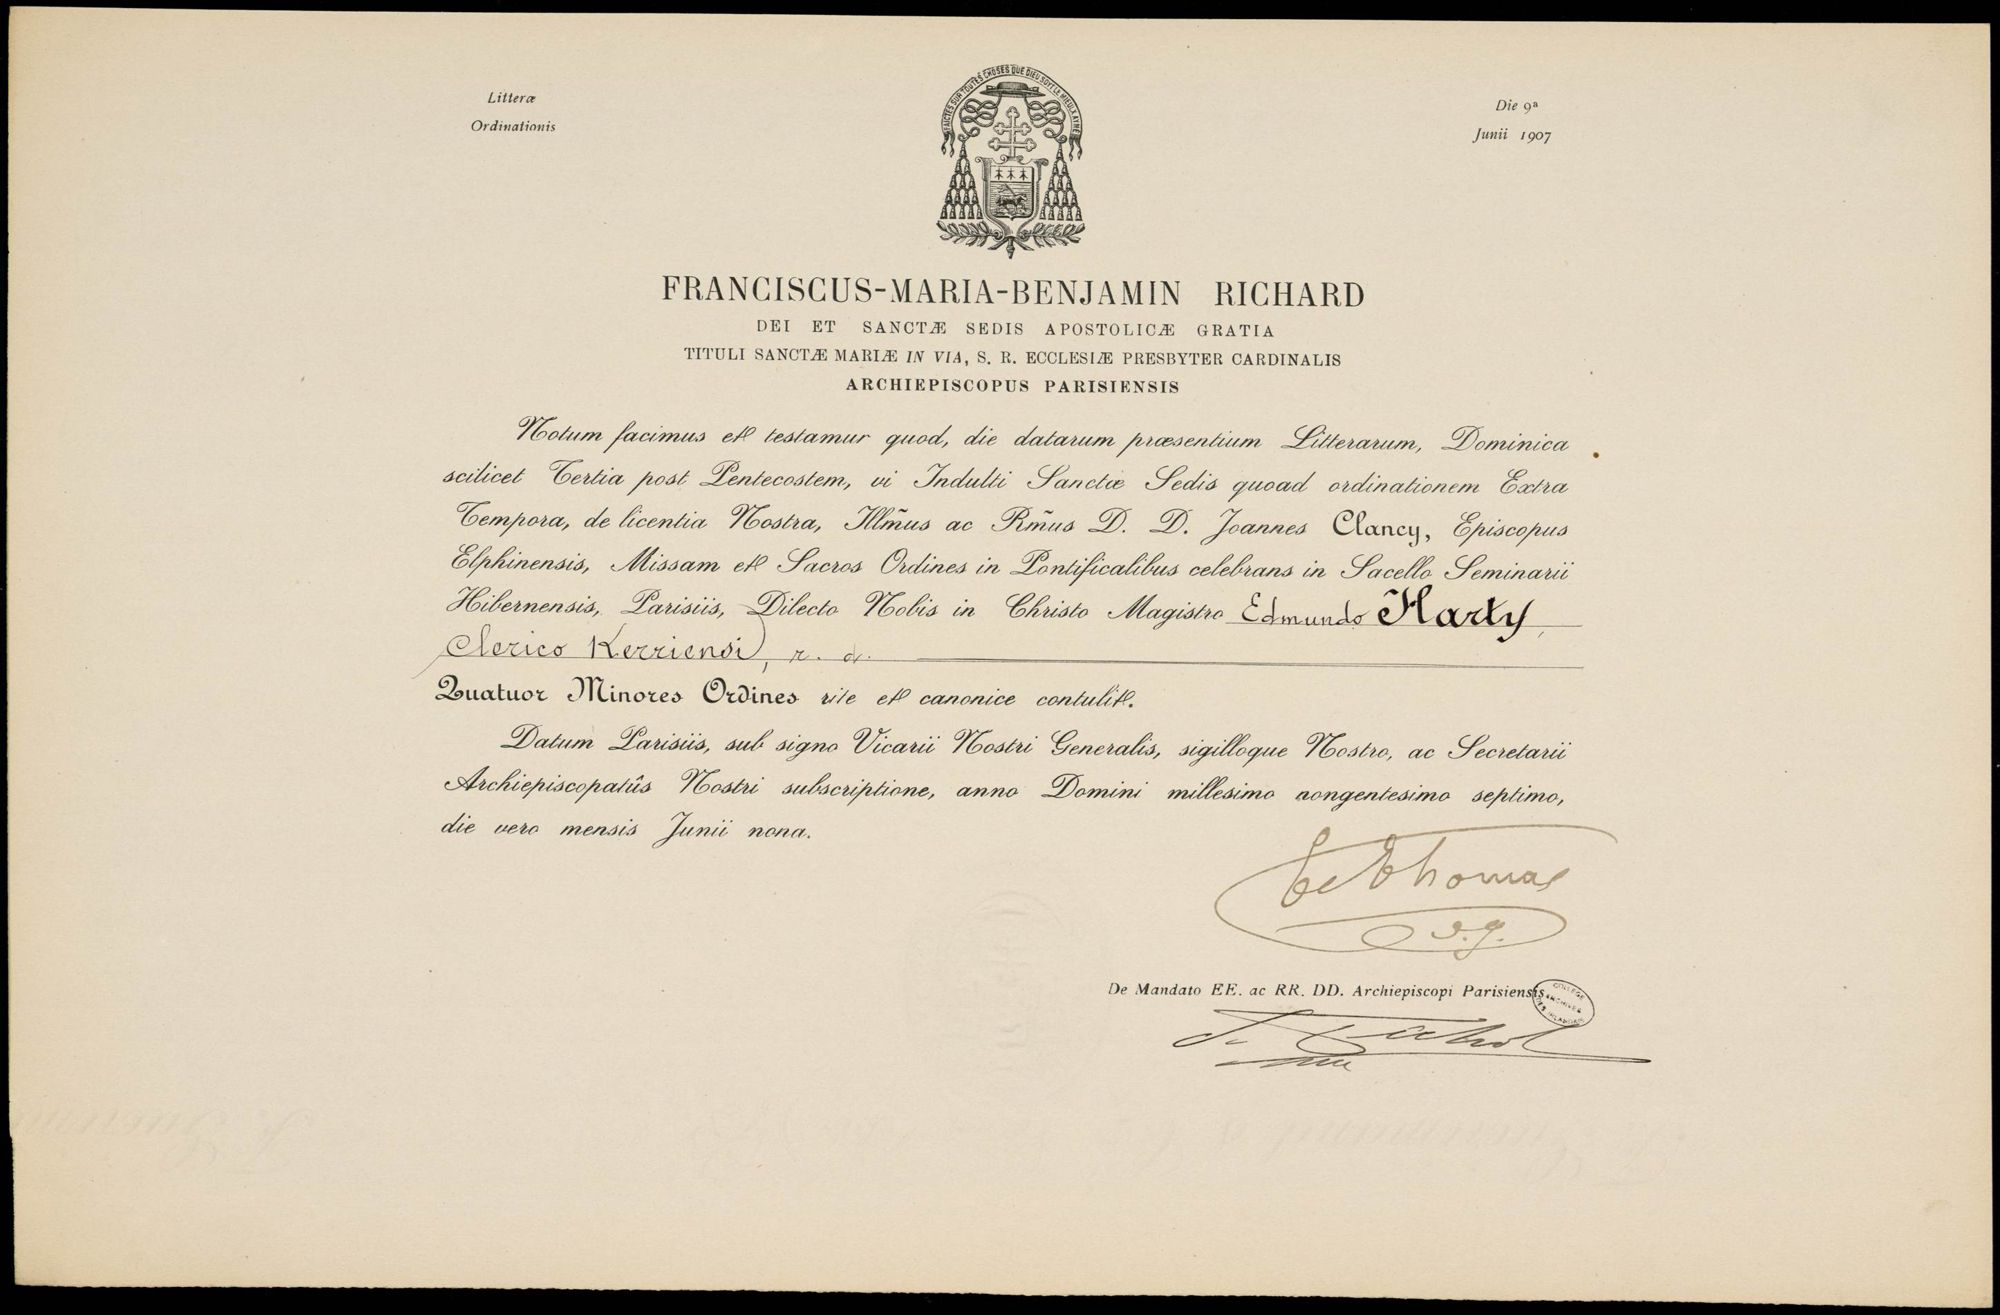 Litteræ
Ordinationis
Die 9ª
Junii 1907
FAICTES SUR TOUTES CHOSES QUE DIEU SOYT LE MIEULX AYMÉ
FRANCISCUS-MARIA-BENJAMIN RICHARD
DEI ET SANCTÆ SEDIS APOSTOLICÆ GRATIA
TITULI SANCTÆ MARIÆ IN VIA, S. R. ECCLESIÆ PRESBYTER CARDINALIS
ARCHIEPISCOPUS PARISIENSIS
Notum facimus et testamur quod, die datarum præsentium Litterarum, Dominica
scilicet Tertia post Pentecostem, vi Indulti Sanctæ Sedis quoad ordinationem Extra
Tempora, de licentia Nostra, Illm̃us ac Rm̃us D. D. Joannes Clancy, Episcopus
Elphinensis, Missam et Sacros Ordines in Pontificalibus celebrans in Sacello Seminarii
Hibernensis, Parisiis, Dilecto Nobis in Christo Magistro Edmundo Harty,
Clerico Kerriensi, r. d.
Quatuor Minores Ordines rite et canonice contulit.
Datum Parisiis, sub signo Vicarii Nostri Generalis, sigilloque Nostro, ac Secretarii
Archiepiscopatûs Nostri subscriptione, anno Domini millesimo nongentesimo septimo,
die vero mensis Junii nona.
Thomas
v. g.
De Mandato EE. ac RR. DD. Archiepiscopi Parisiensis,
COLLEGE
ARCHIVES
DES IRLANDAIS